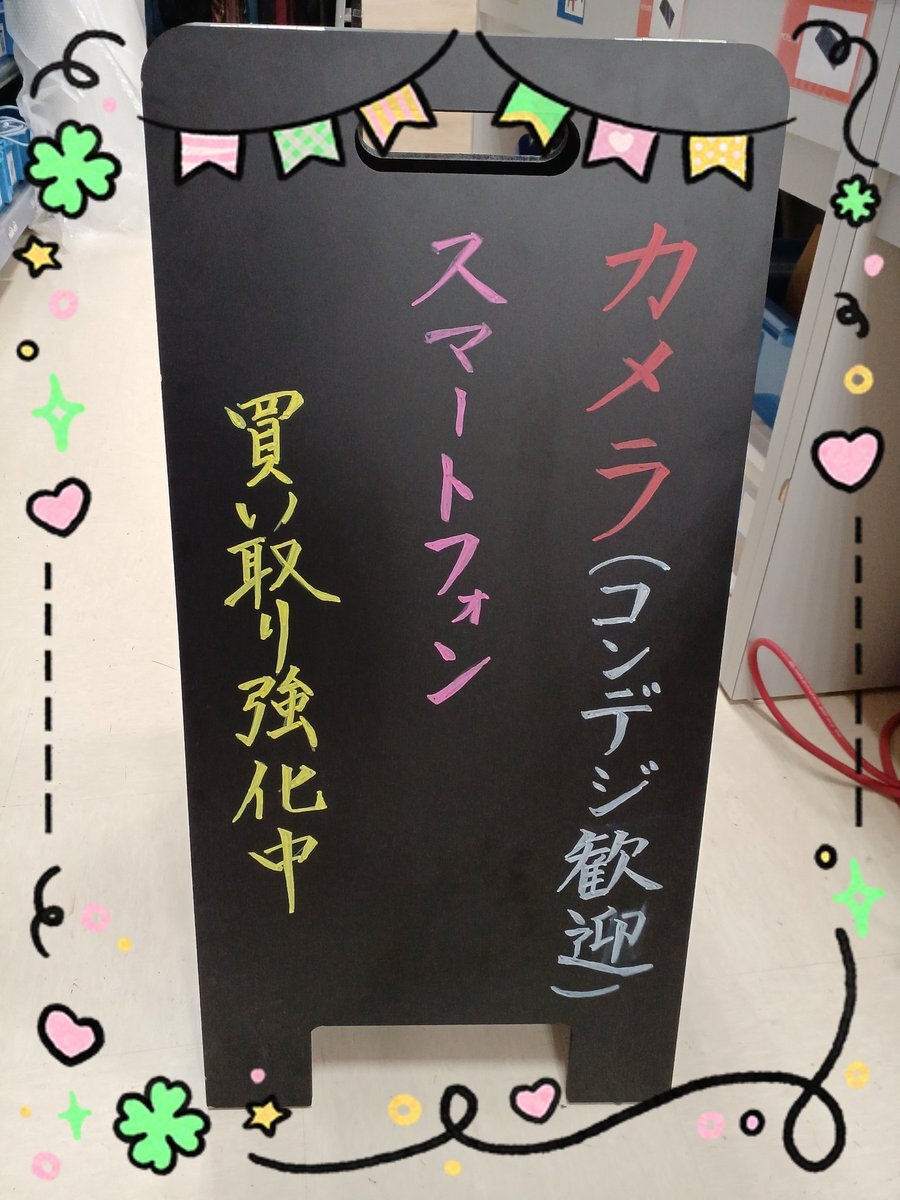 カメラ(コンデジ歓迎)
スマートフォン
買い取り強化中